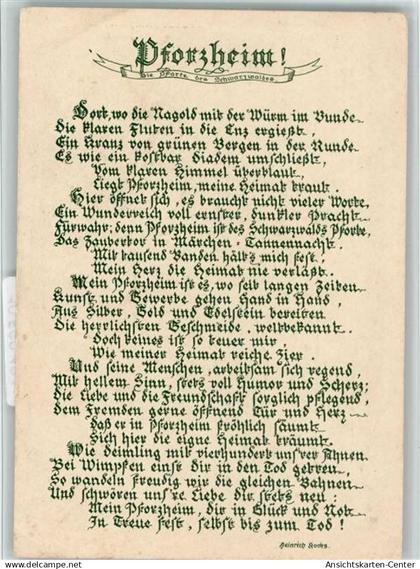 Pforzheim!
Die Pforte des Schwarzwaldes
Dort, wo die Nagold mit der Würm im Bunde
Die klaren Fluten in die Enz ergießt,
Ein Kranz von grünen Bergen in der Runde
Es wie ein kostbar Diadem umschließt,
Vom klaren Himmel überblaut,
Liegt Pforzheim, meine Heimat traut.
Hier öffnet sich, es braucht nicht vieler Worte,
Ein Wunderreich voll ernster, dunkler Pracht
Fürwahr; denn Pforzheim ist des Schwarzwalds Pforte,
Das Zaubertor in Märchen-Tannennacht.
Mit tausend Banden hält's mich fest!
Mein Herz die Heimat nie verläßt.
Mein Pforzheim ist es, wo seit langen Zeiten
Kunst und Gewerbe gehen Hand in Hand,
Aus Silber, Gold und Edelstein bereiten
Die herrlichsten Geschmeide, weltbekannt.
Doch keines ist so teuer mir,
Wie meiner Heimat reiche Zier.
Und seine Menschen, arbeitsam sich regend,
Mit hellem Sinn, stets voll Humor und Scherz;
Die Liebe und die Freundschaft sorglich pflegend,
Dem Fremden gerne öffnend Tür und Herz
Daß er in Pforzheim fröhlich säumt
Sich hier die eigne Heimat träumt.
Wie Deimling mit vierhundert uns'rer Ahnen
Bei Wimpfen einst dir in den Tod getreu,
So wandeln freudig wir die gleichen Bahnen
Und schwören uns're Liebe dir stets neu:
Mein Pforzheim, dir in Glück und Not
In Treue fest, selbst bis zum Tod!
Heinrich
https://www.delcampe.net
Ansichtskarten-Center